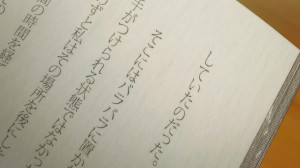 していたのだった。
そこにはバラバラに置か
子がつけられる状態ではなかっ
ずと私はその場所を後にし
の時間を経